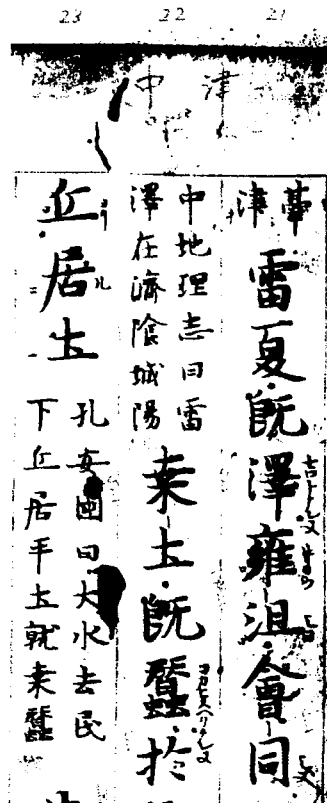 21
22
23
津
中
津
雷夏既澤雍沮會同
中地理志曰雷
澤在濟陰城陽
桒圡既蠶於
丘居圡
孔安國曰大水去民
下丘居平圡就桒蠶